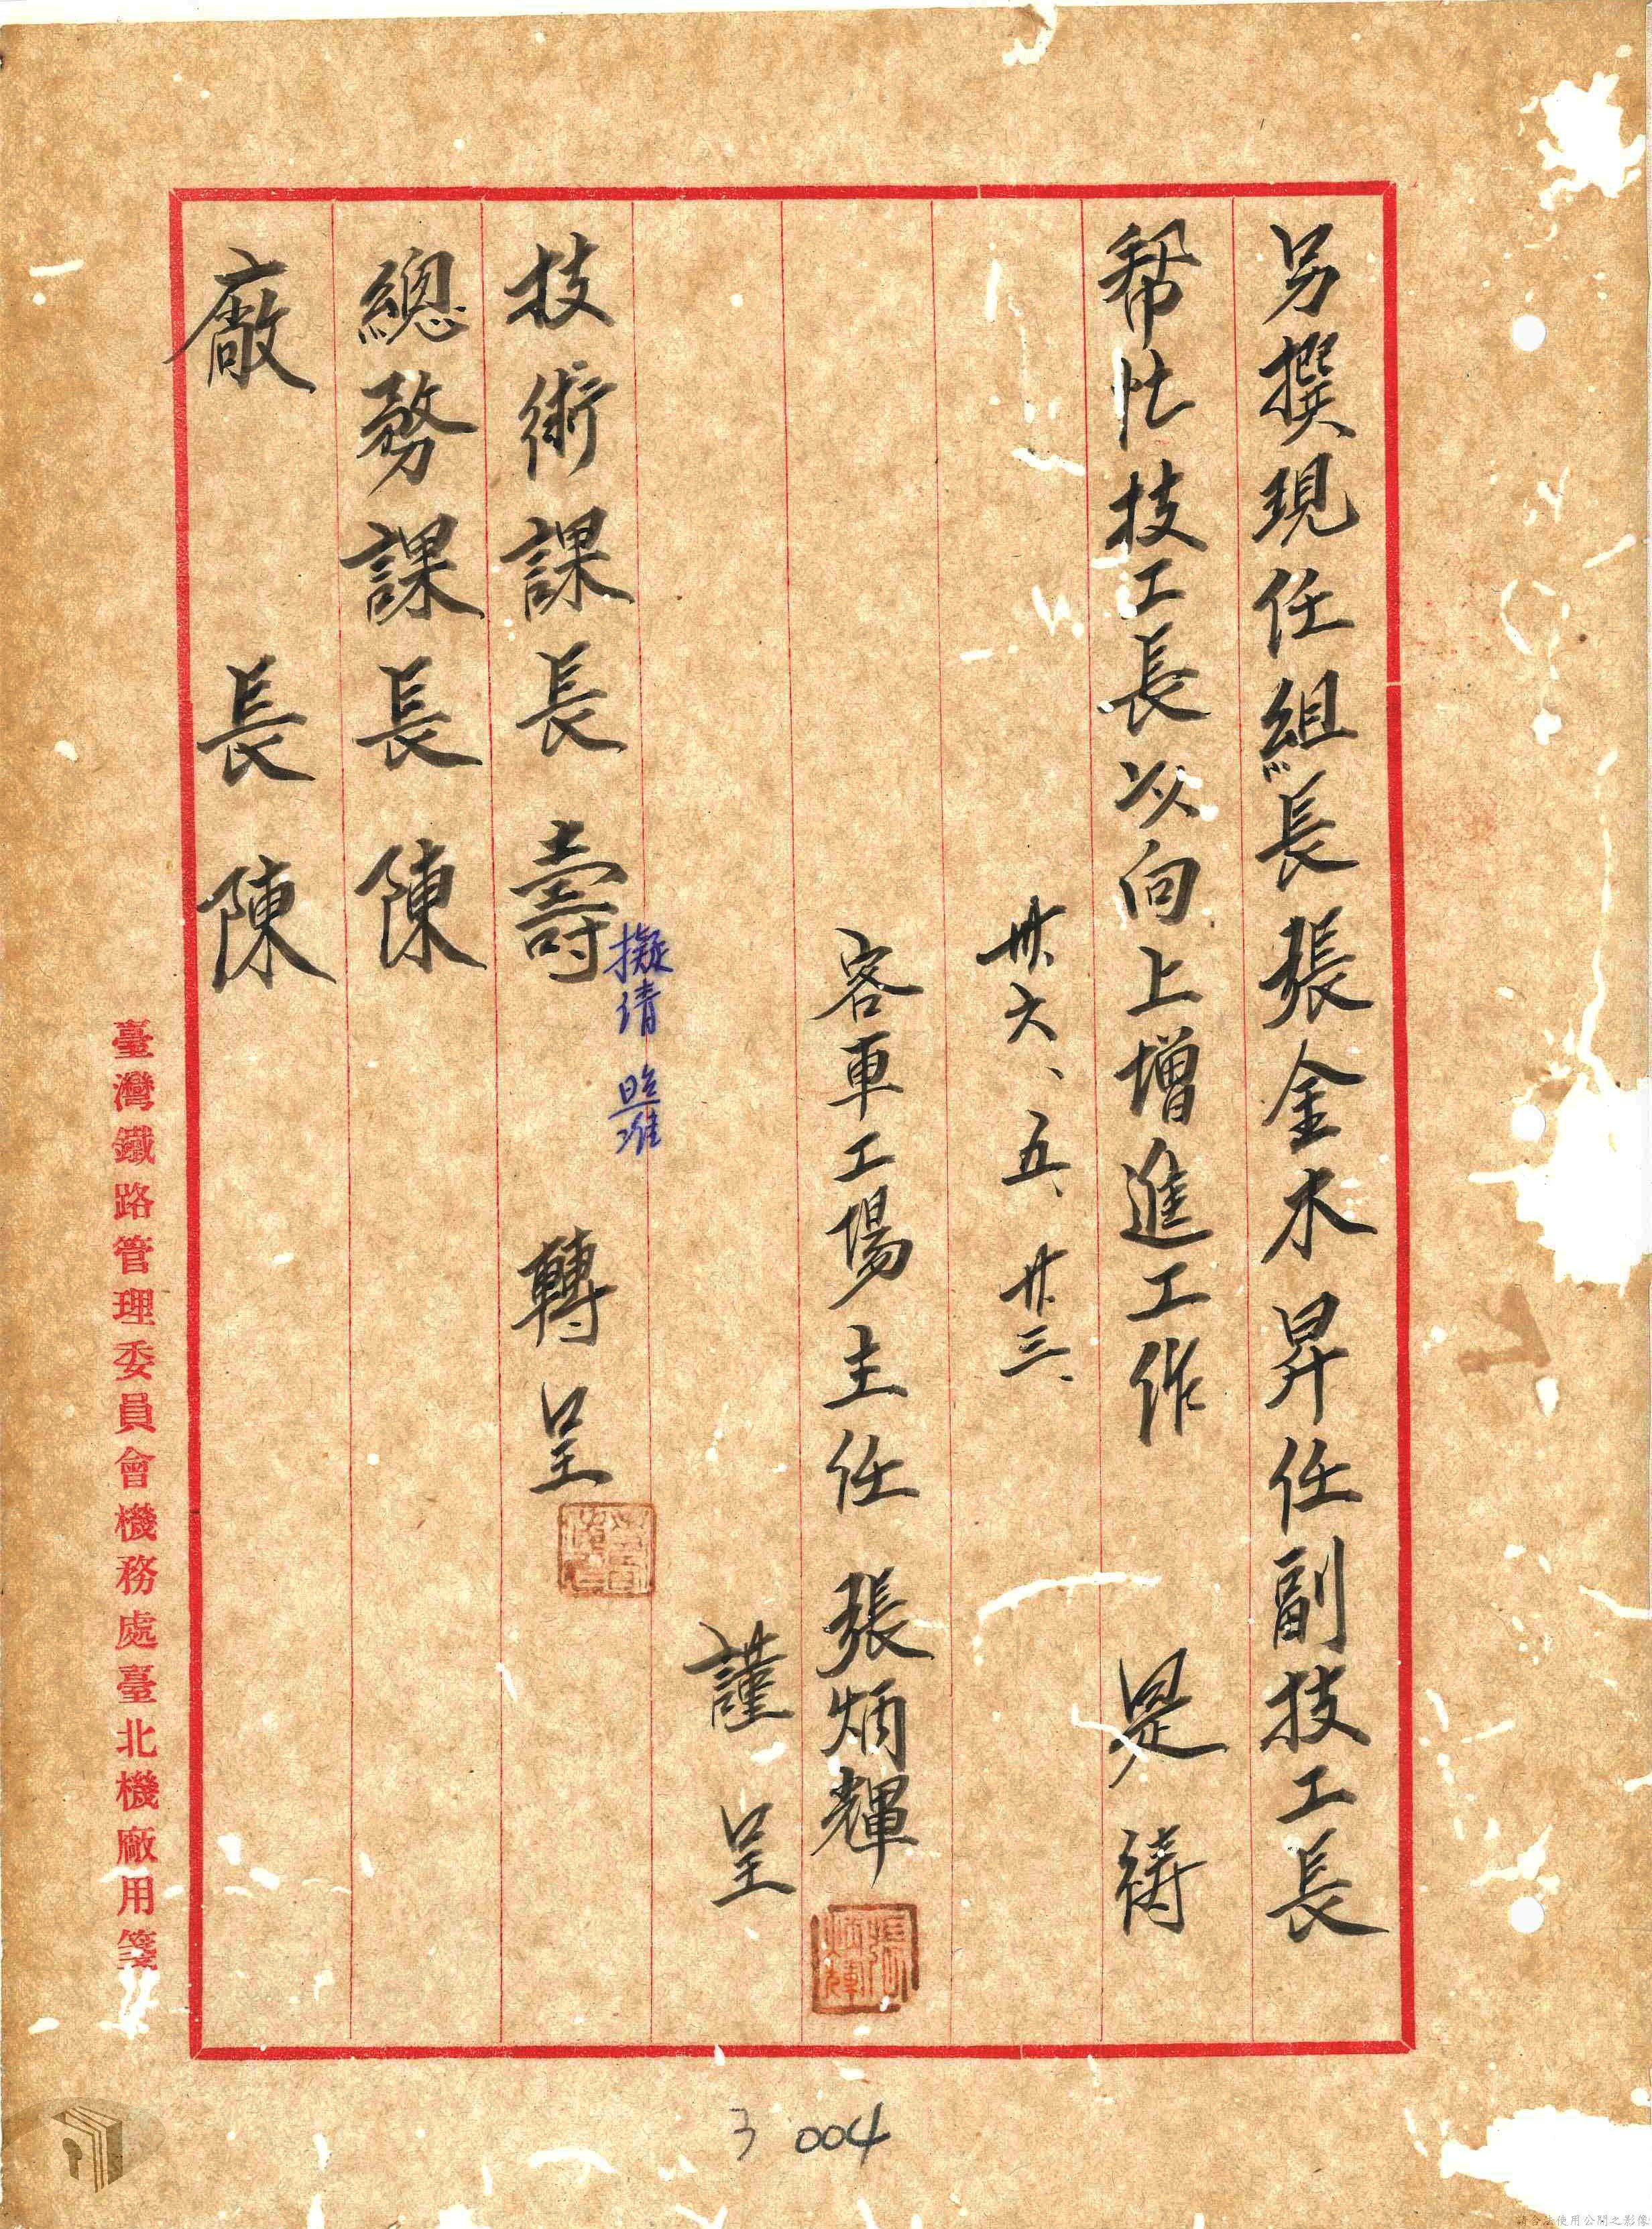 另撰現任組長張金水昇任副技工長
幇忙技工長以向上增進工作 是禱
卅六、五、廿三、
客車工場主任 張炳輝
張炳輝
謹呈
擬請 照准
技術課長壽 轉呈
總務課長陳
廠長陳
臺灣鐵路管理委員會機務處臺北機廠用箋
3 004
請合法使用公開之影像